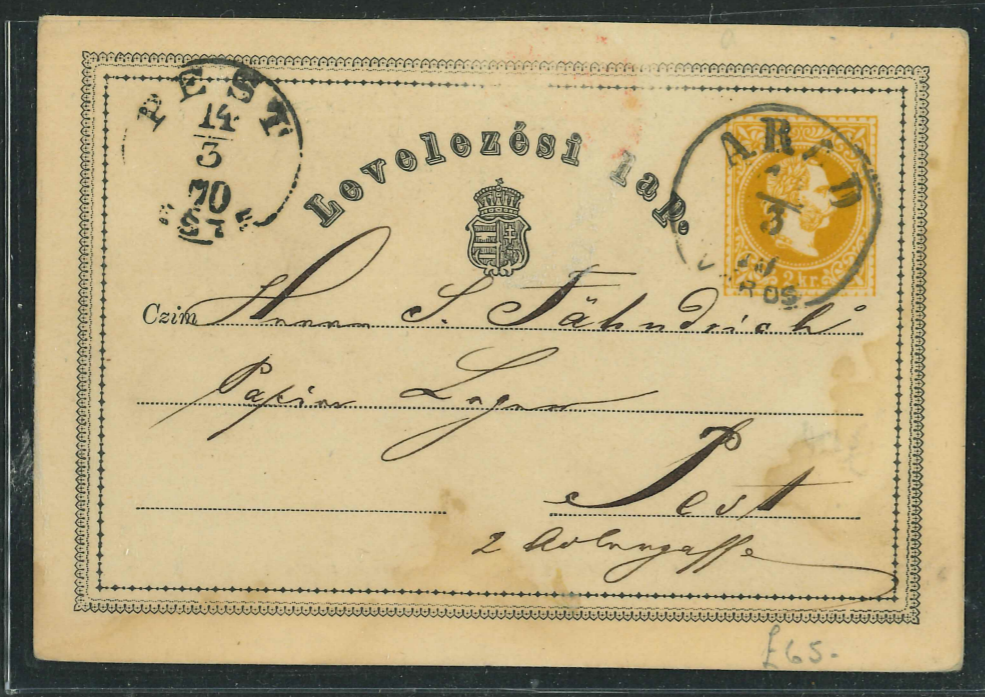 PEST
14
3
70
ESTE
Levelezési lap.
ARAD
3
VÁROS
2 kr.
Czim Herrn S. Fähndrich
Papier Lager
Pest
2 Adlergasse
£65.-